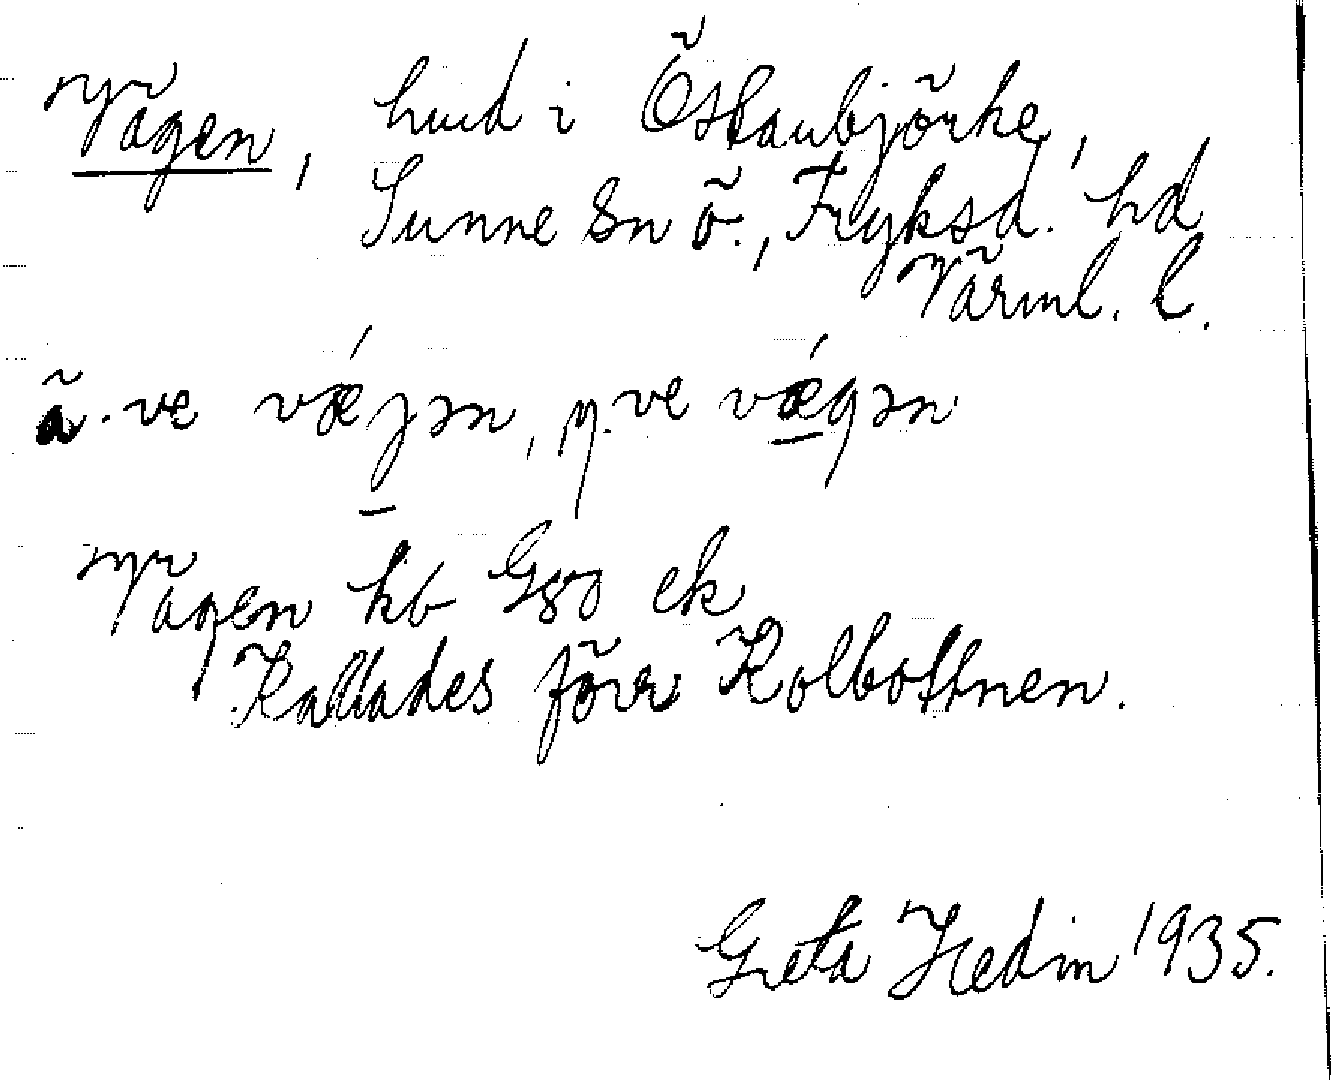 Vägen, hmd i Östanbjörke,
Sunne sn ö., Fryksd. hd
Värml. l.
ä. ve vǽjən, y. ve vǽgən
Vägen hb G80 ek
Kallades förr Kolbottnen.
Greta Hedin 1935.